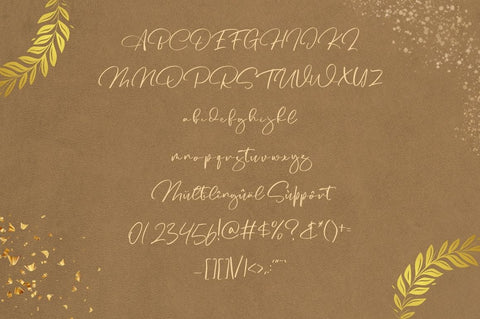 ABCDEFGHIJKL
MNOPQRSTUVWXYZ
abcdefghijkl
mnopqrstuvwxyz
Multilingual Support
0123456!@#$%?&*()+=